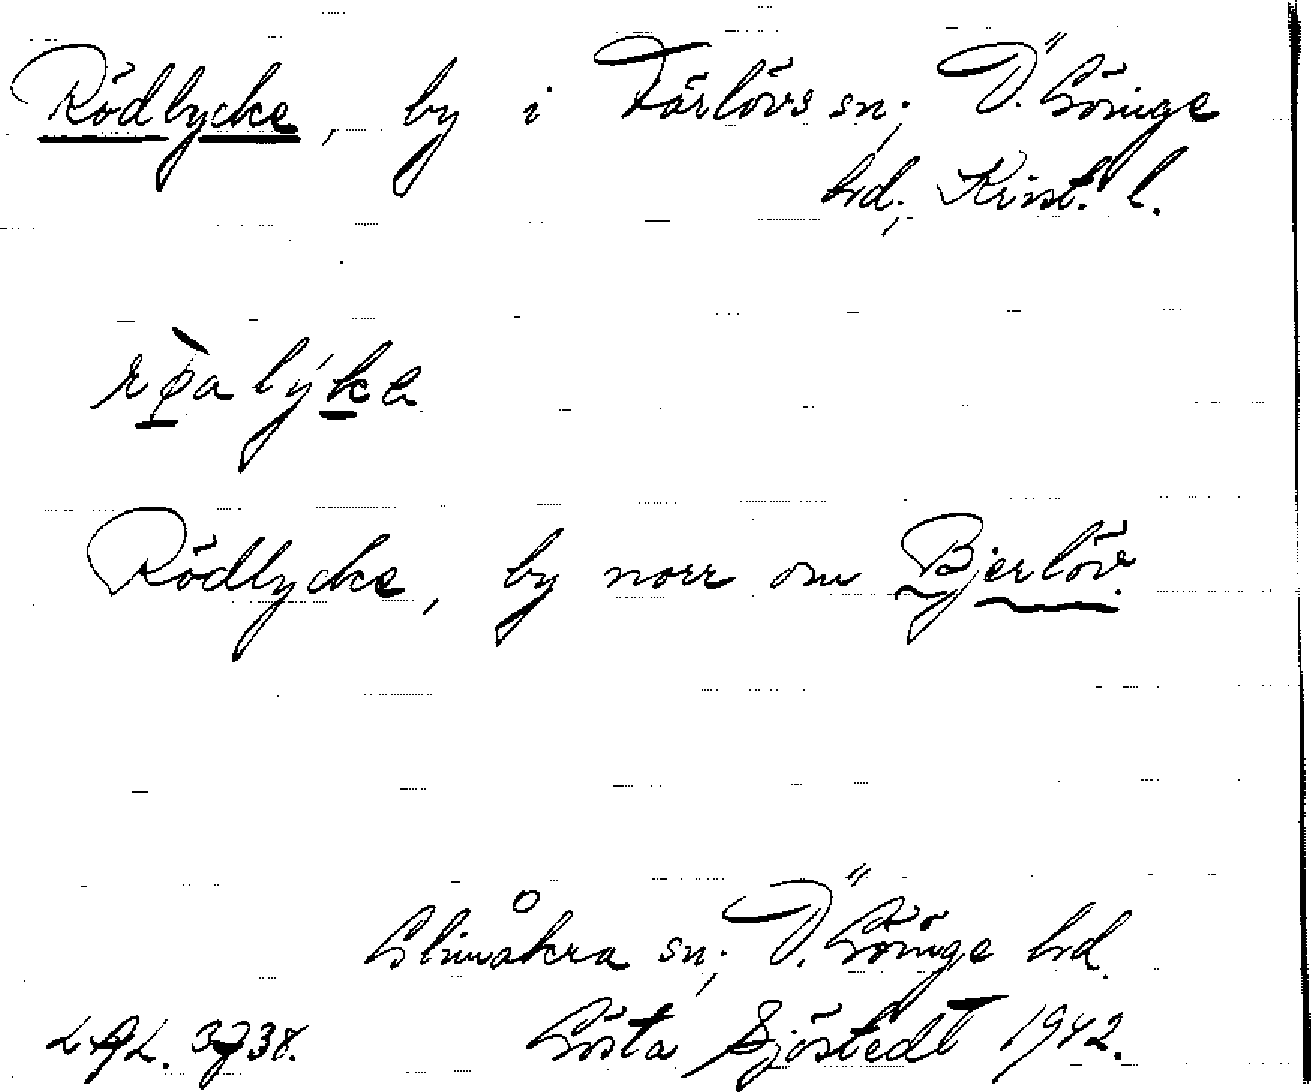 Rödlycke, by i Färlövs sn; Ö. Göinge
hd; Krist. l.
rø̀a lýke
Rödlycke, by norr om Bjerlöv.
Glimåkra sn; Ö. Göinge hd.
LAL. 3738. Gösta Sjöstedt 1942.